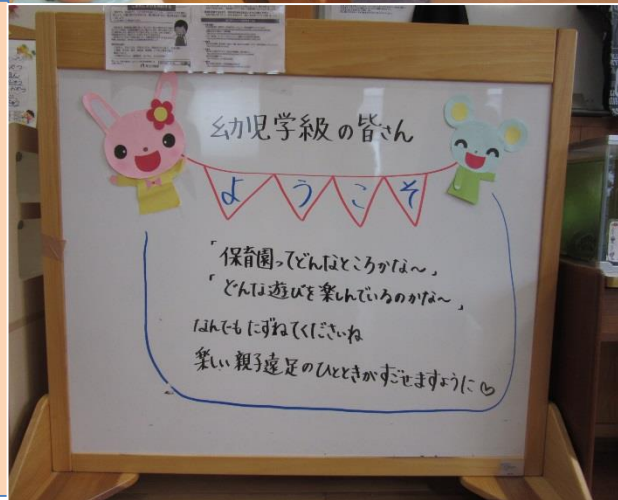 幼児学級の皆さん
ようこそ
「保育園ってどんなところかな～」
「どんな遊びを楽しんでいるのかな～」
なんでもたずねてくださいね
楽しい親子遠足のひとときがすごせますように♡